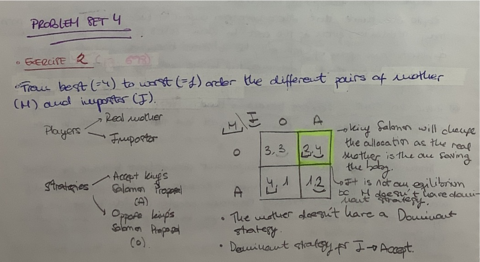 PROBLEM SET 4
- EXERCISE 2
From best (=4) to worst (=1) order the different pairs of mother
(M) and imposter (I).
Players
Real mother
Imposter
Strategies
Accept king's
Salomon Proposal
(A)
Oppose king's
Salomon Proposal
(O)
M I O A
O 3, 3 2, 4
A 4, 1 1, 2
King Salomon will change
the allocation as the real
mother is the one saving
the baby.
It is not an equilibrium
bc M doesn't have domi-
nant strategy.
• The mother doesn't have a Dominant
strategy.
• Dominant strategy for I → Accept.